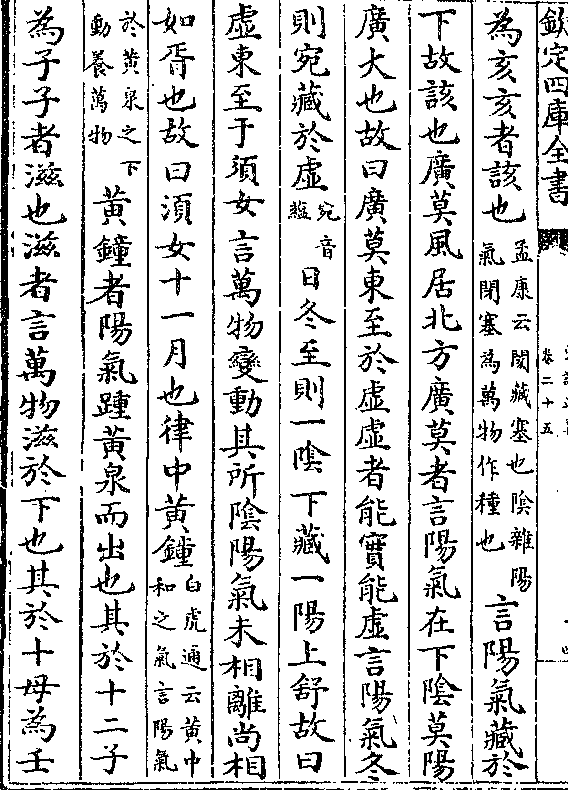 欽定四庫全書
卷二十五
為亥亥者該也孟康云閡藏塞也陰雜陽氣閉塞為萬物作種也言陽氣藏於
下故該也廣莫風居北方廣莫者言陽氣在下陰莫陽
廣大也故曰廣莫東至於虛虛者能實能虛言陽氣冬
則宛藏於虛宛音蘊日冬至則一陰下藏一陽上舒故曰
虛東至于須女言萬物變動其所陰陽氣未相離尚相
如胥也故曰須女十一月也律中黃鐘白虎通云黃中和之氣言陽氣
於黃泉之下動養萬物黃鐘者陽氣踵黃泉而出也其於十二子
為子子者滋也滋者言萬物滋於下也其於十母為壬